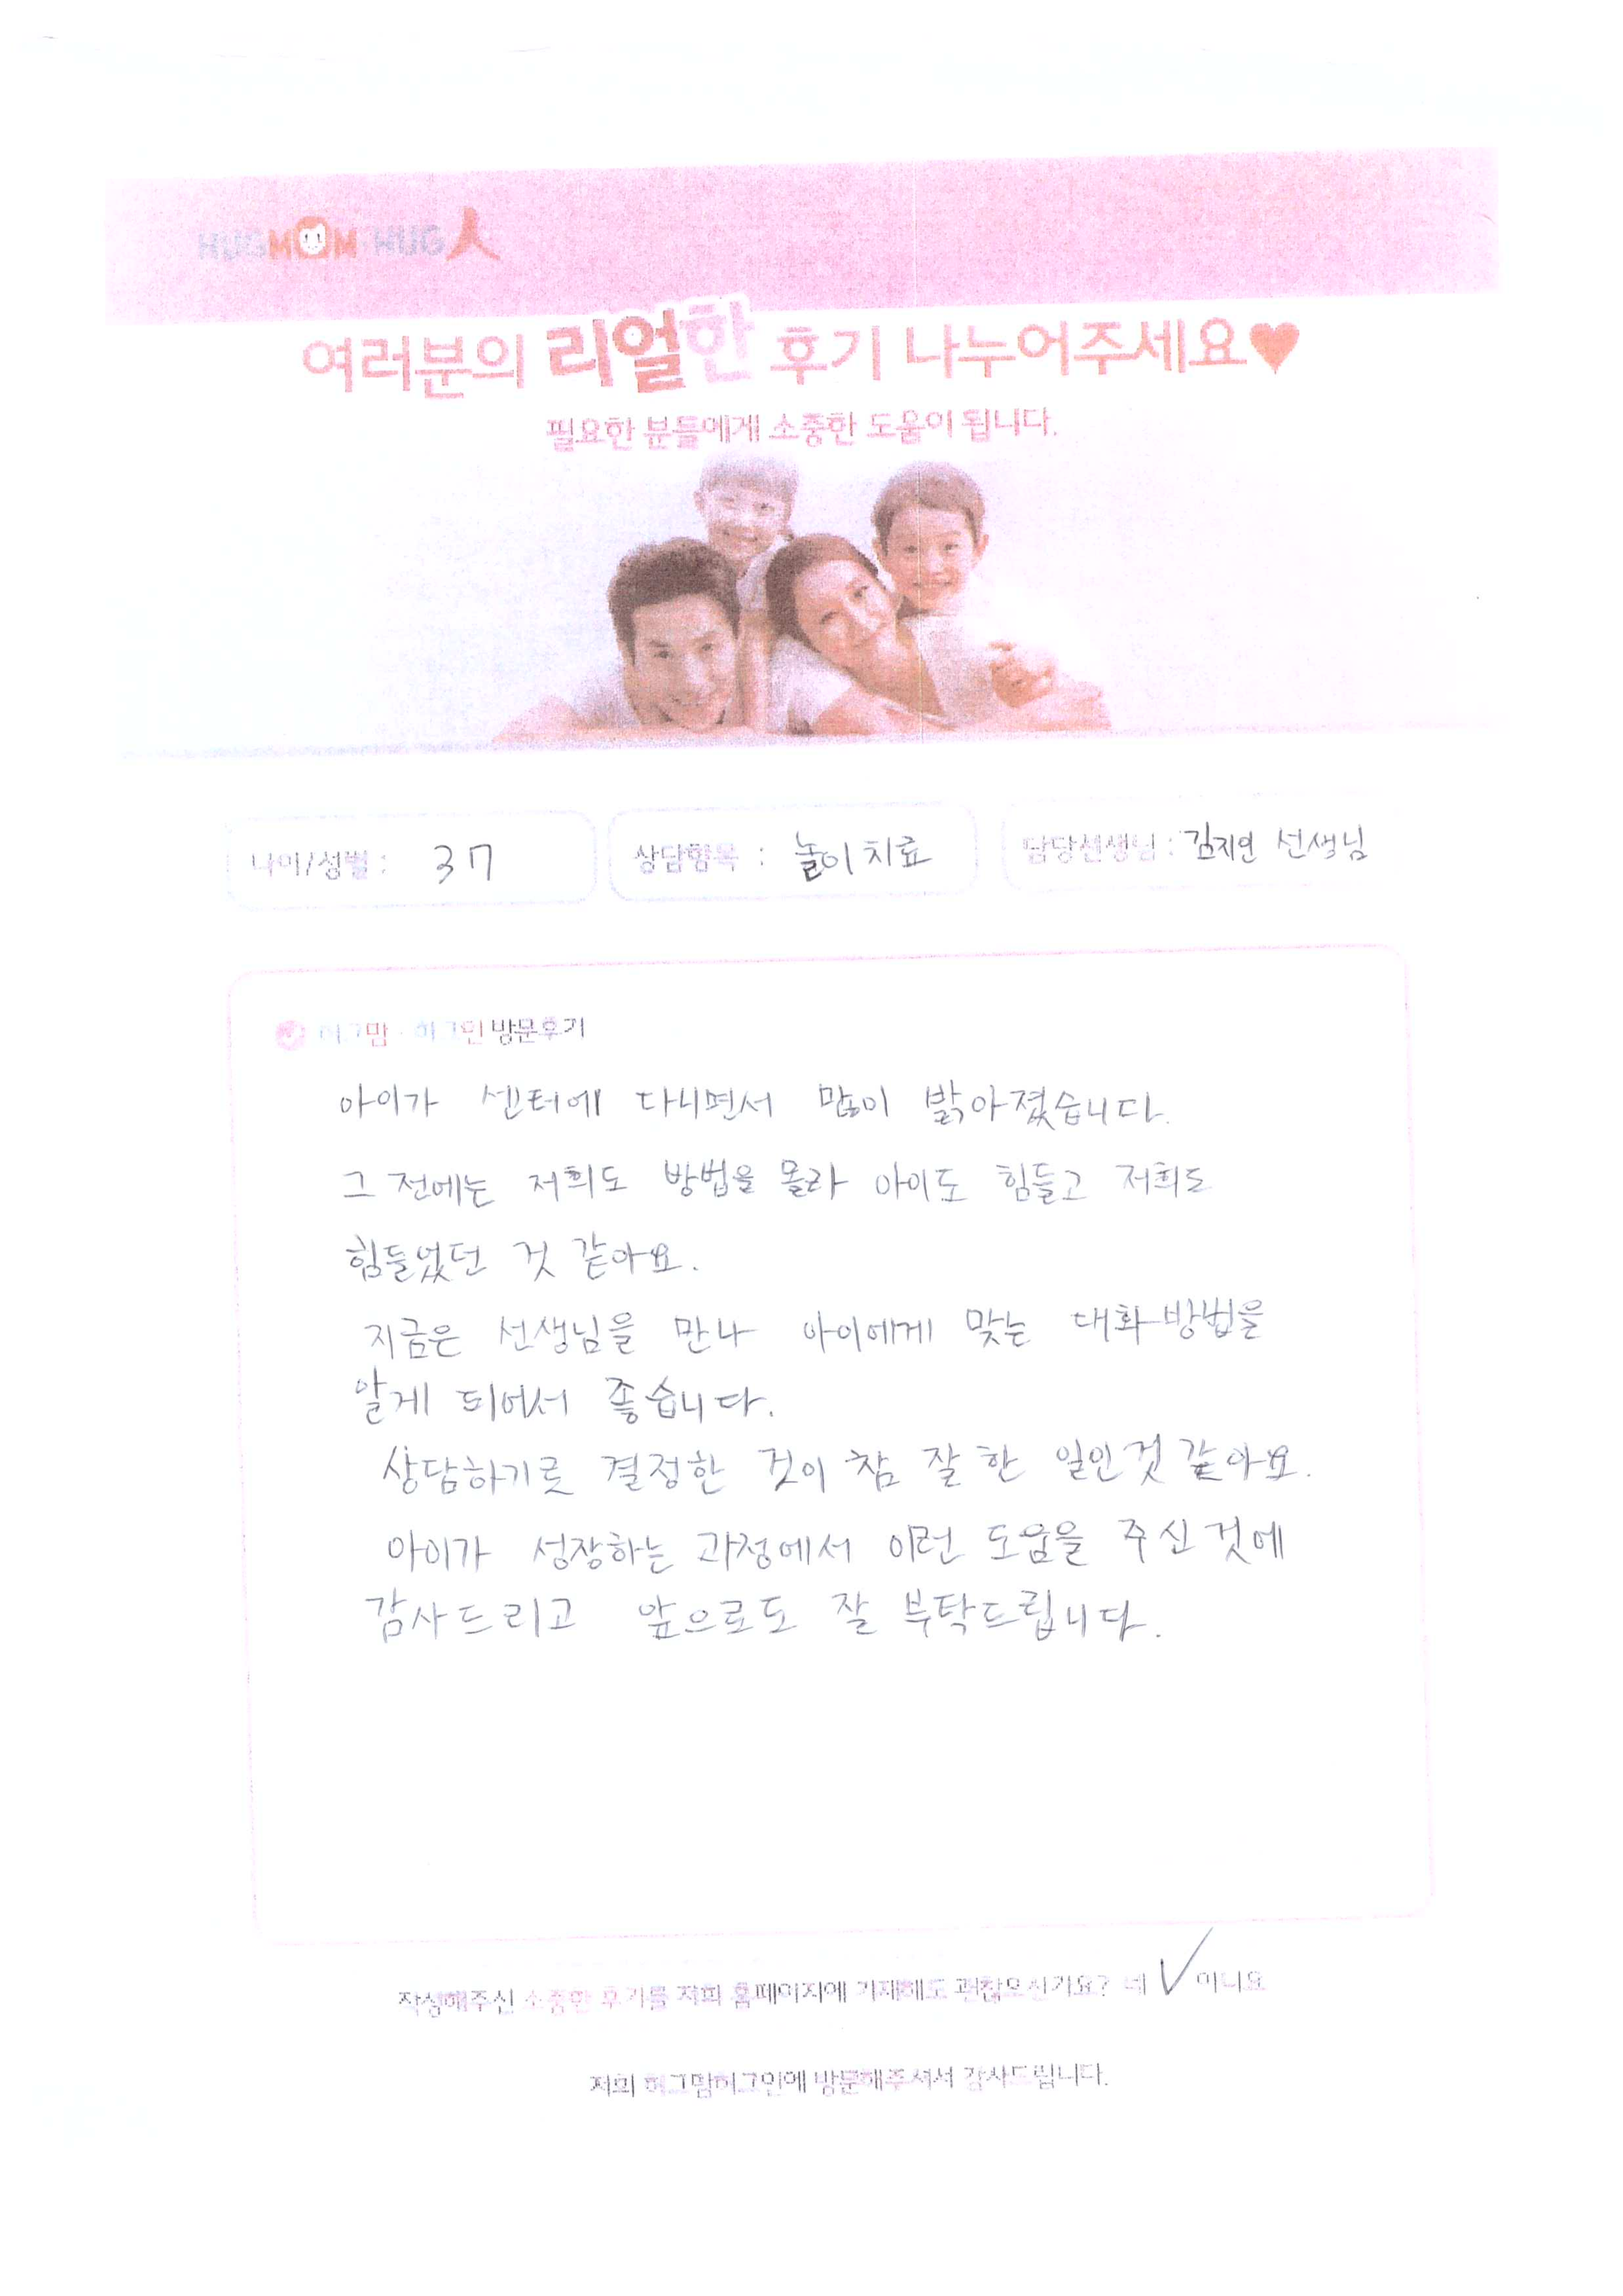 HUGMOM HUG人
여러분의 리얼한 후기 나누어주세요♥
필요한 분들에게 소중한 도움이 됩니다.
나이/성별 : 37
상담항목 : 놀이치료
담당선생님 : 김지연 선생님
허그맘·허그인 방문후기
아이가 센터에 다니면서 많이 밝아졌습니다.
그 전에는 저희도 방법을 몰라 아이도 힘들고 저희도
힘들었던 것 같아요.
지금은 선생님을 만나 아이에게 맞는 대화방법을
알게 되어서 좋습니다.
상담하기로 결정한 것이 참 잘 한 일인것 같아요.
아이가 성장하는 과정에서 이런 도움을 주신것에
감사드리고 앞으로도 잘 부탁드립니다.
작성해주신 소중한 후기를 저희 홈페이지에 기재해도 괜찮으신가요? 네 ✓ 아니요
저희 허그맘허그인에 방문해주셔서 감사드립니다.